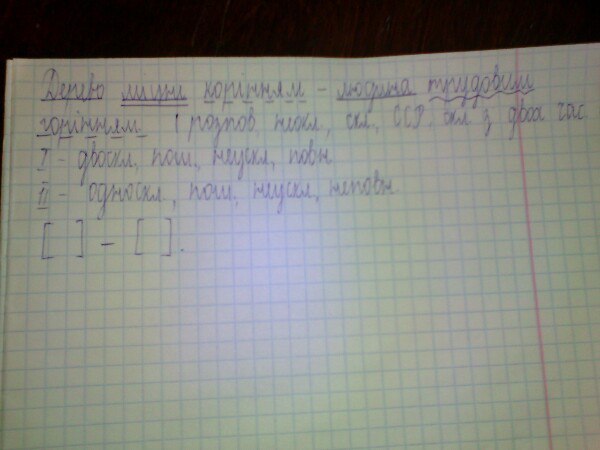 Дерево міцни корінням – людина трудовим
горінням (розпов, неокл., скл., ССР, скл з двох час.
I – двоскл, пош, неускл, повн
II – односкл., пош, неускл, неповн
[ ] – [ ].